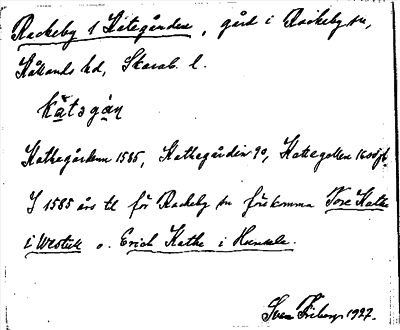 Rackeby 1 Kategården, gård i Rackeby sn,
Kållands hd, Skarab. l.
kåtagán
Kathegårdenn 1585, Kathegårdin 90, Kattegollen 1600 jb.
I 1585 års tl för Rackeby sn förekomma Tore Kathe
i Westik o. Erich Kathe i
Sven Friberg 1927.